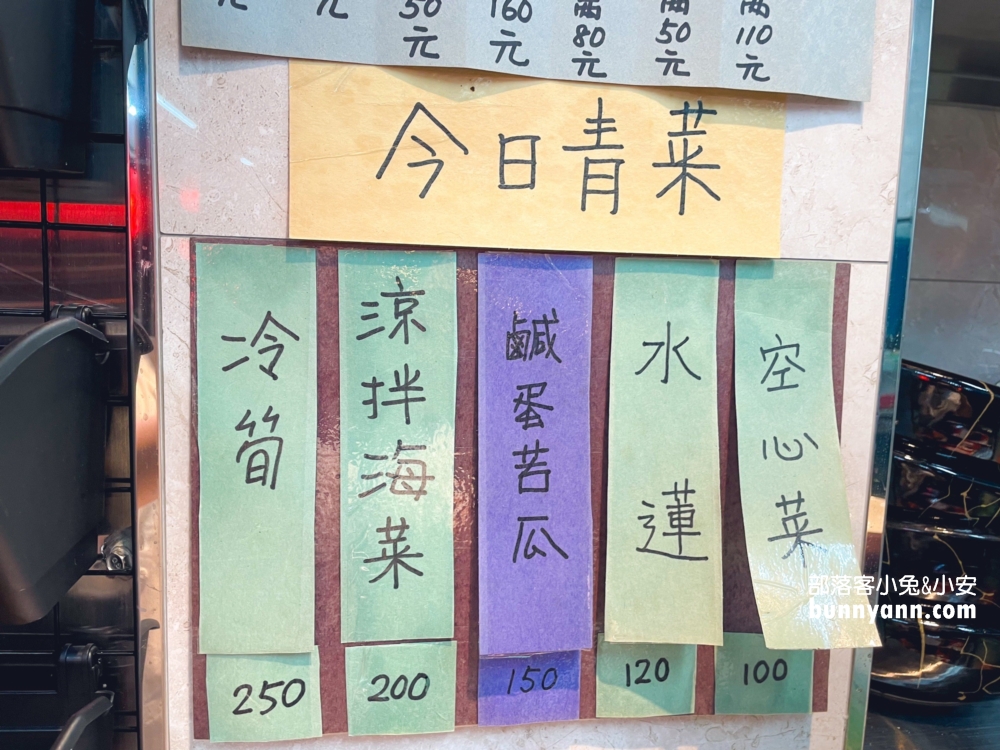 元
元
50元
160元
兩80元
兩50元
兩110元
今日青菜
冷筍
250
涼拌海菜
200
鹹蛋苦瓜
150
水蓮
120
空心菜
100
部落客小兔&小安
bunnyann.com